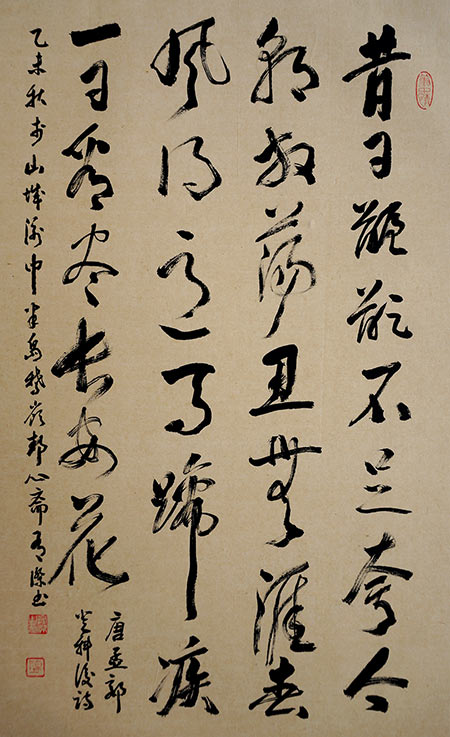 昔日齷齪不足夸今
朝放蕩思無涯春
風得意馬蹄疾
一日看尽長安花
唐孟郊
登科後詩
乙未秋於山城渝中半島鵝嶺心齋書